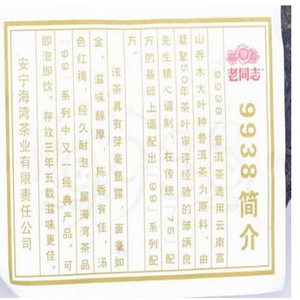 老同志
9938简介
「9938」普洱茶选用云南高
山乔木大叶种普洱茶为原料，由
凝聚50年茶叶审评经验的邹炳良
先生精心调制，在传统「75」配
方的基础上调配出「99」系列配
方。
该茶具有芽毫显露，面毫如
金，滋味醇厚，陈香有佳，汤
色红褐，经久耐泡，属海湾茶品
「99」系列中又一经典产品。可
即泡即饮，存放三年五载滋味更佳。
安宁海湾茶业有限责任公司